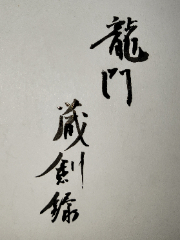 龍門
藏劍錄